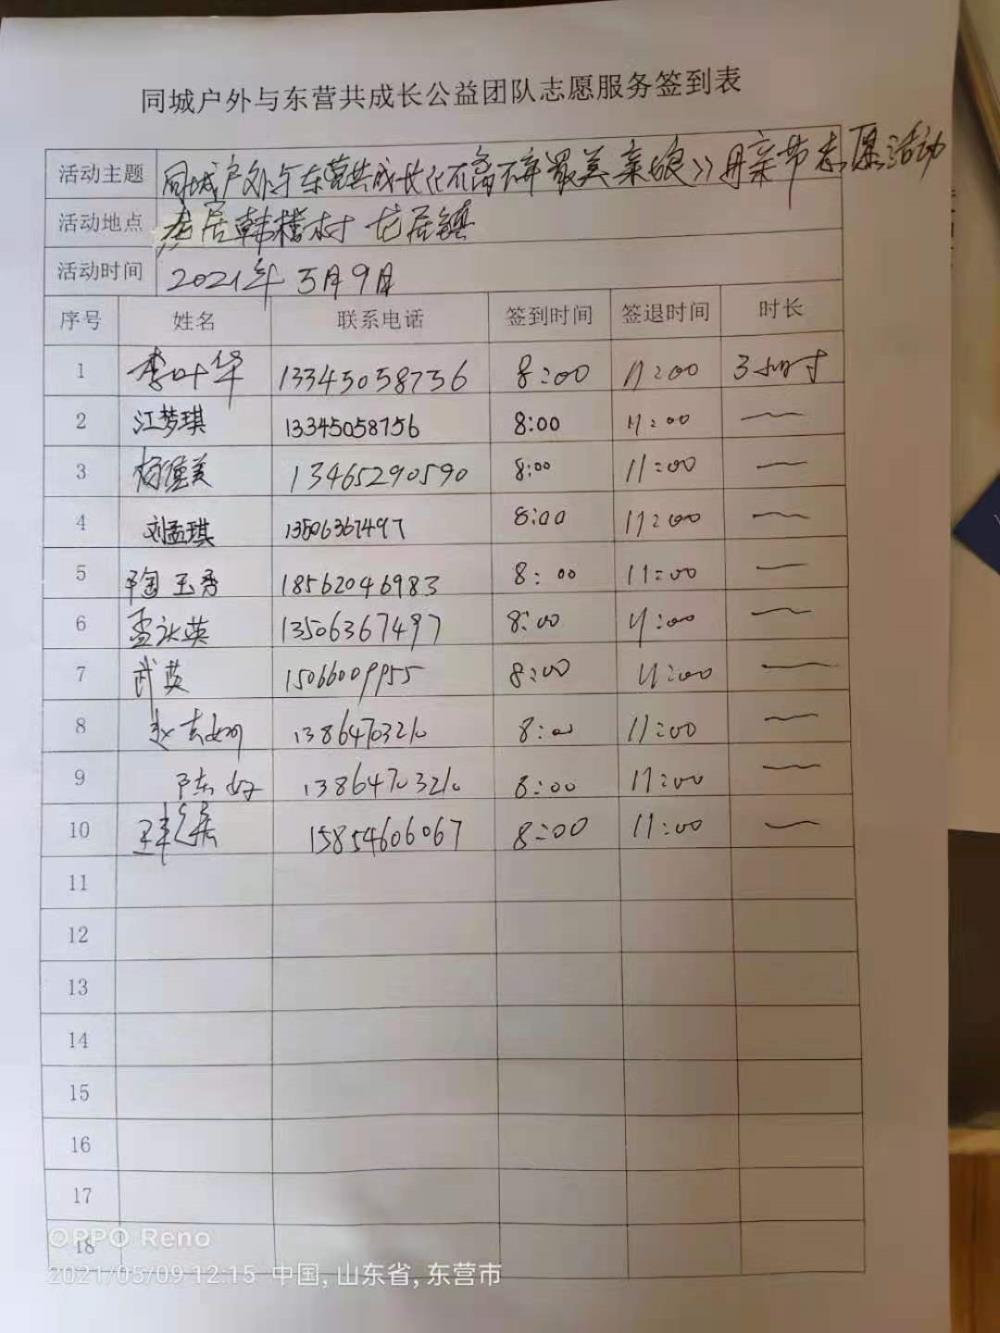 同城户外与东营共成长公益团队志愿服务签到表
活动主题 同城户外与东营共成长《不离不弃最美亲娘》母亲节志愿活动
活动地点 龙居韩楼村 龙居镇
活动时间 2021年5月9日
序号 姓名 联系电话 签到时间 签退时间 时长
1 李叶华 13345058756 8:00 11:00 3小时
2 江梦琪 13345058756 8:00 11:00 —
3 13465290590 8:00 11:00 —
4 刘孟琪 13506367497 8:00 11:00 —
5 陶玉秀 18562046983 8:00 11:00 —
6 孟祥英 13506367497 8:00 11:00 —
7 武英 15066009955 8:00 11:00 —
8 13864703210 8:00 11:00 —
9 陈好 13864703210 8:00 11:00 —
10 15854606067 8:00 11:00 —
11
12
13
14
15
16
17
18
OPPO Reno
2021/05/09 12:15 中国, 山东省, 东营市